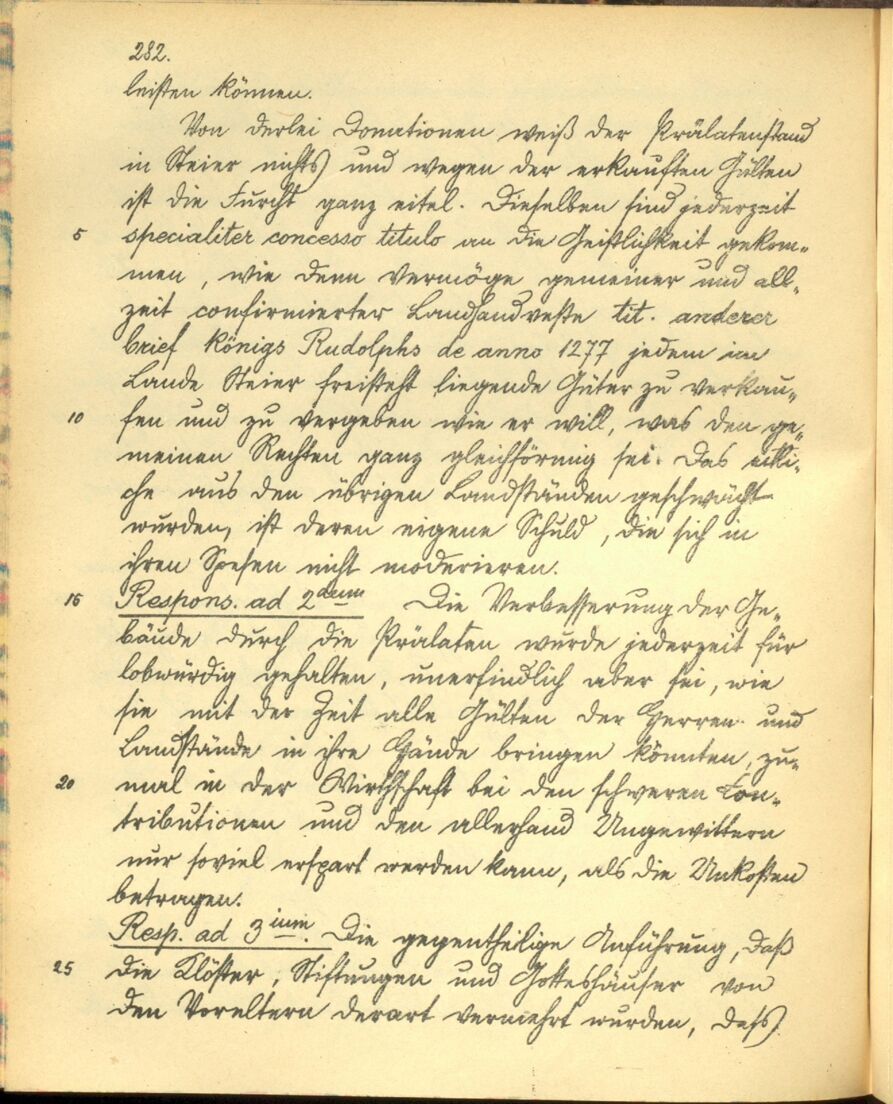 282.
leisten können.
Von derlei Donationen weiß der Prälatenstand
in Steier nichts und wegen der erkauften Gülten
ist die Furcht ganz eitel. Dieselben sind jederzeit
5 specialiter concesso titulo an die Geistlichkeit gekom-
men, wie denn vermöge gemeiner und all-
zeit confirmierter Landhandveste tit. anderer
brief Königs Rudolphs de anno 1277 jedem im
Lande Steier freisteht liegende Güter zu verkau-
10 fen und zu vergeben wie er will, was den ge-
meinen Rechten ganz gleichförmig sei. Das etli-
che aus den übrigen Landständen geschwächt
wurden, ist deren eigene Schuld, die sich in
ihren Spesen nicht moderieren.
15 Respons. ad 2dum Die Verbesserung der Ge-
bäude durch die Prälaten wurde jederzeit für
lobwürdig gehalten, unerfindlich aber sei, wie
sie mit der Zeit alle Gülten der Herren- und
Landstände in ihre Hände bringen könnten, zu-
20 mal in der Wirthschaft bei den schweren Con-
tributionen und den allerhand Ungewittern
nur soviel erspart werden kann, als die Unkosten
betragen.
Resp. ad 3ium. Die gegentheilige Anführung, daß
25 die Klöster, Stiftungen und Gotteshäuser von
den Voreltern derart vermehrt wurden, dass